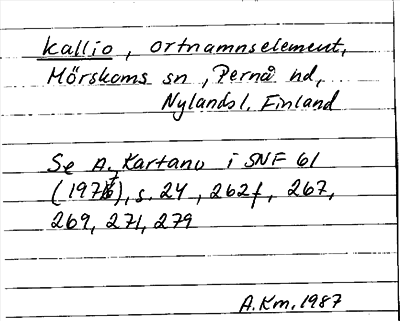 kallio, ortnamnselement,
Mörskoms sn, Pernå hd,
Nylands l. Finland
Se A. Kartano i SNF 61
(1971), s. 24, 262f, 267,
269, 271, 279
A.Km. 1987